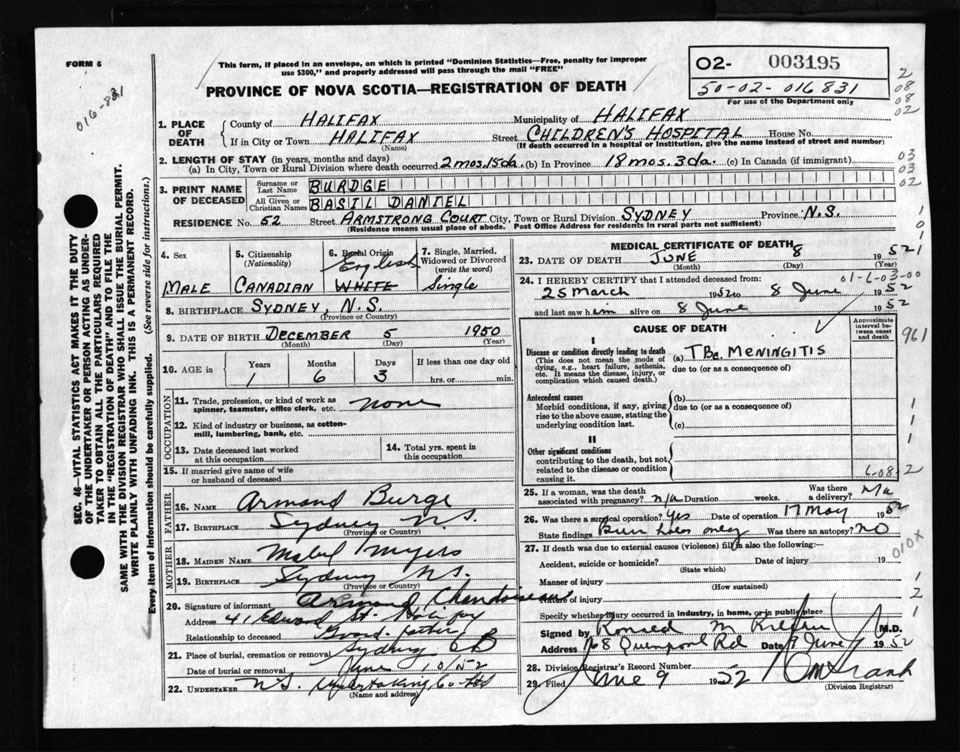 FORM 6
This form, if placed in an envelope, on which is printed "Dominion Statistics—Free, penalty for improper
use $300," and properly addressed will pass through the mail "FREE"
PROVINCE OF NOVA SCOTIA—REGISTRATION OF DEATH
02- 003195
50-02-016831
For use of the Department only
016-831
2
08
08
02
1. PLACE OF DEATH
County of HALIFAX Municipality of HALIFAX
If in City or Town HALIFAX Street CHILDREN'S HOSPITAL House No.
(Name) (If death occurred in a hospital or institution, give the name instead of street and number)
2. LENGTH OF STAY (in years, months and days)
(a) In City, Town or Rural Division where death occurred 2 mos. 15 da. (b) In Province 18 mos. 3 da. (c) In Canada (if immigrant)
03
03
02
3. PRINT NAME OF DECEASED
Surname or Last Name BURDGE
All Given or Christian Names BASIL DANIEL
RESIDENCE No. 52 Street ARMSTRONG COURT City, Town or Rural Division SYDNEY Province N.S.
(Residence means usual place of abode. Post Office Address for residents in rural parts not sufficient)
1
01
1
4. Sex
MALE
5. Citizenship
(Nationality)
CANADIAN
6. Racial Origin
English
WHITE
7. Single, Married,
Widowed or Divorced
(write the word)
Single
8. BIRTHPLACE SYDNEY, N.S.
(Province or Country)
9. DATE OF BIRTH DECEMBER 5 1950
(Month) (Day) (Year)
10. AGE in
Years Months Days If less than one day old
1 6 3 hrs. or min.
OCCUPATION
11. Trade, profession, or kind of work as
spinner, teamster, office clerk, etc. none
12. Kind of industry or business, as cotton-
mill, lumbering, bank, etc.
13. Date deceased last worked
at this occupation
14. Total yrs. spent in
this occupation
15. If married give name of wife
or husband of deceased
FATHER
16. Name Armand Burge
17. Birthplace Sydney N.S.
(Province or Country)
MOTHER
18. MAIDEN NAME Mabel Myers
19. BIRTHPLACE Sydney N.S.
(Province or Country)
20. Signature of informant Armand
Address 41 Edward St. Halifax
Relationship to deceased Grand-father
21. Place of burial, cremation or removal Sydney CB
Date of burial or removal June 10/52
22. UNDERTAKER N.S. Undertaking Co Ltd
(Name and address)
MEDICAL CERTIFICATE OF DEATH
23. DATE OF DEATH JUNE 8 1952
(Month) (Day) (Year)
1
24. I HEREBY CERTIFY that I attended deceased from: 01-6-03-00
25 March 1952 to 8 June 1952
and last saw him alive on 8 June 1952
CAUSE OF DEATH
Approximate
interval be-
tween onset
and death
961
I
Disease or condition directly leading to death
(This does not mean the mode of
dying, e.g., heart failure, asthenia,
etc. It means the disease, injury, or
complication which caused death.)
(a) TBc. MENINGITIS
due to (or as a consequence of)
Antecedent causes
Morbid conditions, if any, giving
rise to the above cause, stating the
underlying condition last.
(b)
due to (or as a consequence of)
(c)
1
1
1
II
Other significant conditions
contributing to the death, but not
related to the disease or condition
causing it.
6-08
2
25. If a woman, was the death
associated with pregnancy? n/a Duration weeks. Was there a delivery?
26. Was there a surgical operation? Yes Date of operation 17 May 1952
State findings Burr holes only Was there an autopsy? NO
010x
27. If death was due to external causes (violence) fill in also the following:—
Accident, suicide or homicide? Date of injury 19
(State which)
Manner of injury
(How sustained)
Nature of injury
Specify whether injury occurred in industry, in home, or in public place
1
2
1
Signed by Ronald M M.D.
Address 168 Quinpool Rd Date 9 June 1952
28. Division Registrar's Record Number
29. Filed June 9 1952
(Division Registrar)
SEC. 46—VITAL STATISTICS ACT MAKES IT THE DUTY
OF THE UNDERTAKER OR PERSON ACTING AS UNDER-
TAKER TO OBTAIN ALL THE PARTICULARS REQUIRED
IN THE "REGISTRATION OF DEATH" AND TO FILE THE
SAME WITH THE DIVISION REGISTRAR WHO SHALL ISSUE THE BURIAL PERMIT.
WRITE PLAINLY WITH UNFADING INK. THIS IS A PERMANENT RECORD.
Every item of information should be carefully supplied. (See reverse side for instructions.)